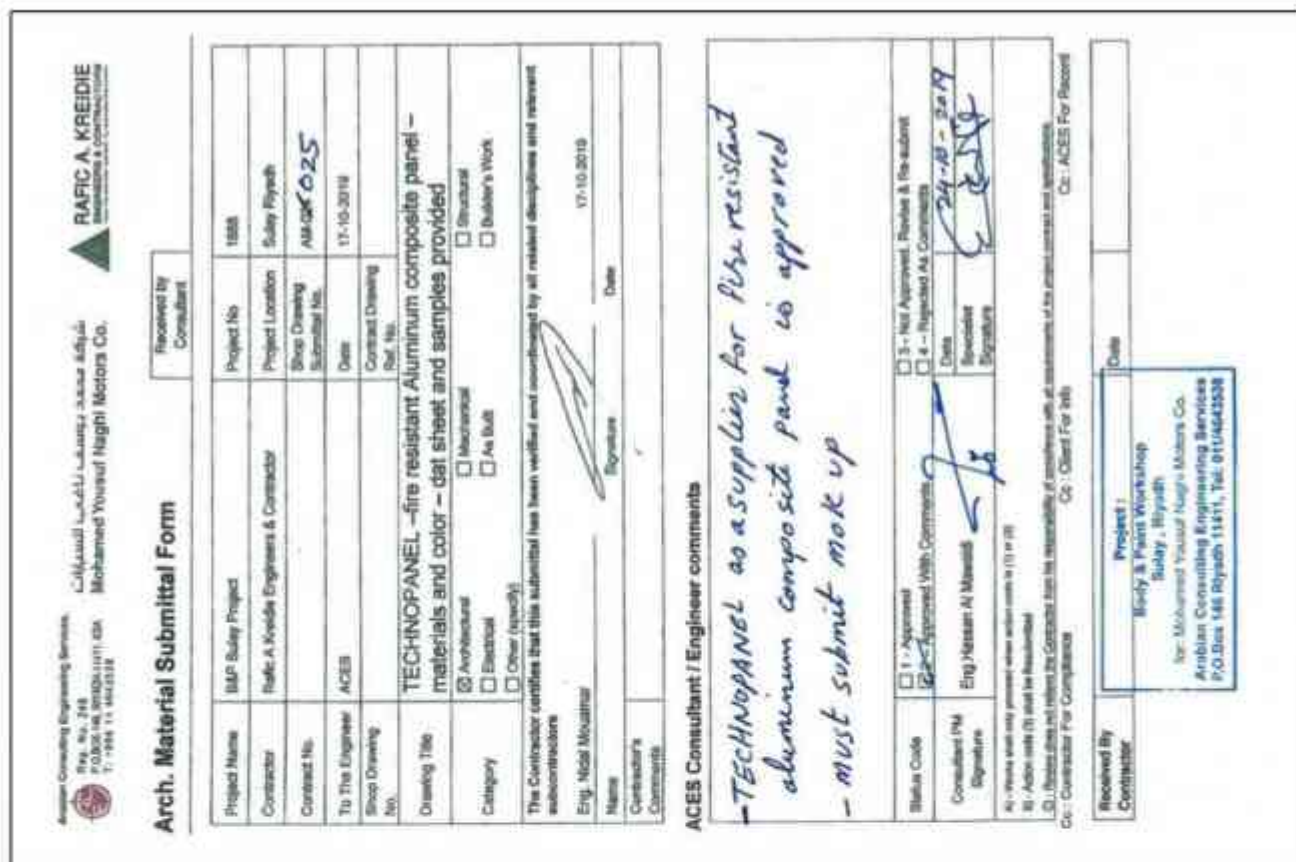 Arabian Consulting Engineering Services.
Reg. No. 248
شركة محمد يوسف ناغي للسيارات
Mohamed Yousuf Naghi Motors Co.
RAFIC A. KREIDIE
ENGINEERS & CONTRACTORS
Arch. Material Submittal Form
Received by
Consultant
Project Name B&P Sulay Project Project No 1888
Contractor Rafic A Kreidie Engineers & Contractor Project Location Sulay Riyadh
Contract No. Shop Drawing Submittal No. 025
To The Engineer ACES Date 17-10-2019
Shop Drawing No. Contract Drawing Ref. No.
Drawing Title TECHNOPANEL –fire resistant Aluminum composite panel –
materials and color – dat sheet and samples provided
Category Architectural Mechanical Structural
Electrical As Built Builder's Work
Other (specify)
The Contractor certifies that this submittal has been verified and coordinated by all related disciplines and relevant
subcontractors
Eng. Nidal 17-10-2019
Name Signature Date
Contractor's
Comments
ACES Consultant / Engineer comments
- TECHNOPANEL as a supplier for fire resistant
aluminum composite panel is approved
- must submit mok up
Status Code 1 - Approved 3 - Not Approved, Revise & Re-submit
Approved With Comments 4 - Rejected As Comments
Consultant PM Signature Eng Hassan Al Date 24-10-2019
Specialist Signature
A) - Works shall only proceed when action code is (1) or (2)
B) - Action code (3) shall be Resubmitted
Cc : Contractor For Compliance Cc : Client For Info Cc : ACES For Record
Received By
Contractor Date
Project :
Body & Paint Workshop
Sulay , Riyadh
for: Mohamed Yousuf Naghi Motors Co.
Arabian Consulting Engineering Services
P.O.Box 146 Riyadh 11411, Tel: 011/4643538